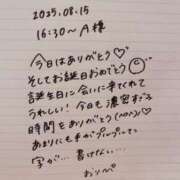 2025.08.15
16:30〜A様
今日はありがとう♡
そしてお誕生日おめでとう
誕生日に会いに来てくれて
うれしい！今日も濃密すぎる
時間をありがとう(^^)♡
あまりにも手がプルプルで
字が…書けない…